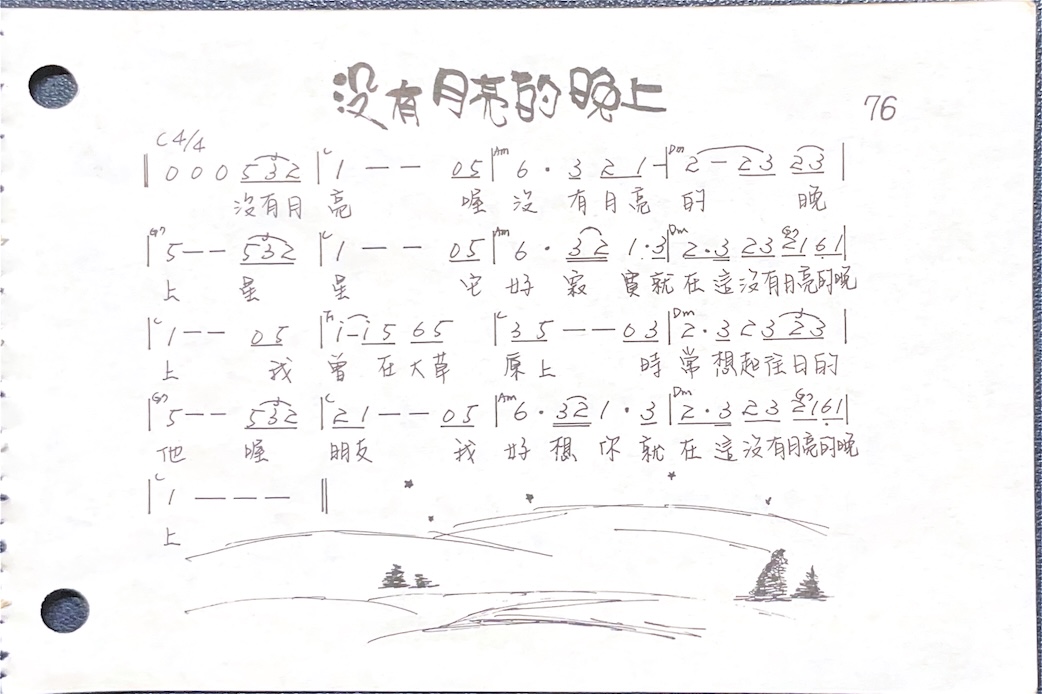 沒有月亮的晚上
76
C 4/4
‖ 0 0 0 5 3 2 | C 1 — — 0 5 | Am 6 · 3 2 1 — | Dm 2 — 2 3 2 3 |
沒有月 亮 喔 沒 有月亮 的 晚
| G7 5 — — 5 3 2 | C 1 — — 0 5 | Am 6 · 3 2 1 · 3 | Dm 2 · 3 2 3 G7 2 1 6 1 |
上 星 星 它 好 寂 寞就 在 這沒有月亮的晚
| C 1 — — 0 5 | 1 — 1 5 6 5 | C 3 5 — — 0 3 | Dm 2 · 3 2 3 2 3 |
上 我 曾 在大草 原上 時 常 想起往日的
| G7 5 — — 5 3 2 | C 2 1 — — 0 5 | Am 6 · 3 2 1 · 3 | Dm 2 · 3 2 3 G7 2 1 6 1 |
他 喔 朋友 我 好 想 你 就 在 這沒有月亮的晚
| C 1 — — — ‖
上